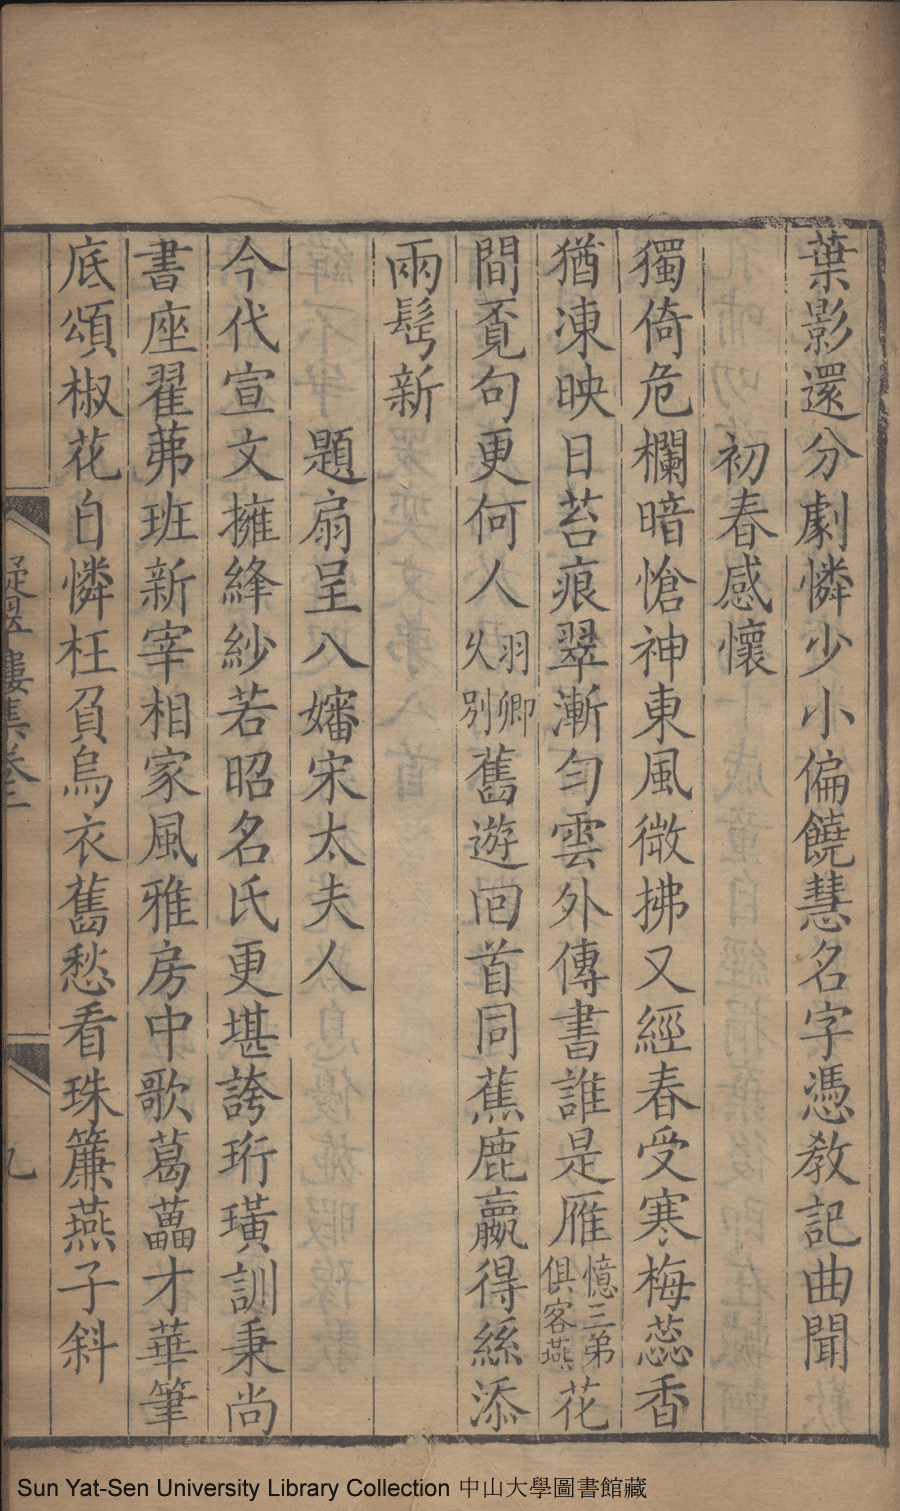 葉影還分劇憐少小偏饒慧名字憑教記曲聞
初春感懷
獨倚危欄暗愴神東風微拂又經春受寒梅蕊香
猶凍映日苔痕翠漸勻雲外傳書誰是雁憶三弟俱客燕花
間覔句更何人羽卿火別舊遊回首同蕉鹿嬴得絲添
兩髩新
題扇呈八嬸宋太夫人
今代宣文擁絳紗若昭名氏更堪誇珩璜訓秉尚
書座翟茀班新宰相家風雅房中歌葛藟才華筆
底頌椒花自憐枉負烏衣舊愁看珠簾燕子斜
凝翠樓集卷二
九
Sun Yat-Sen University Library Collection 中山大學圖書館藏